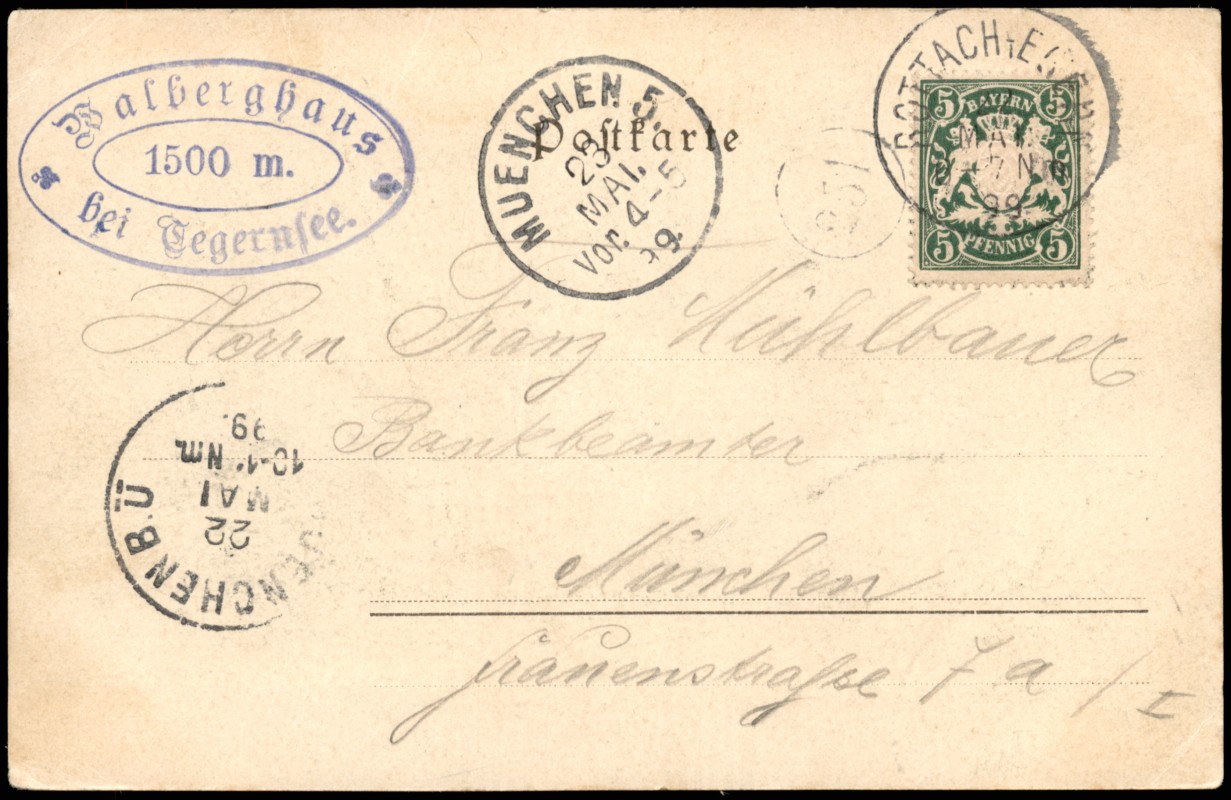 Walberghaus
1500 m.
bei Tegernsee.
MUENCHEN 5.
23
MAI.
Vor. 4-5
99.
Postkarte
ROTTACH-EGERN
MAI
7 N
99
BAYERN
5 5
5 5
PFENNIG
Herrn Franz Mühlbauer
Bankbeamter
München
Frauenstraße 7 a / I
MUENCHEN B.Ü
22
MAI
Nm.
99.